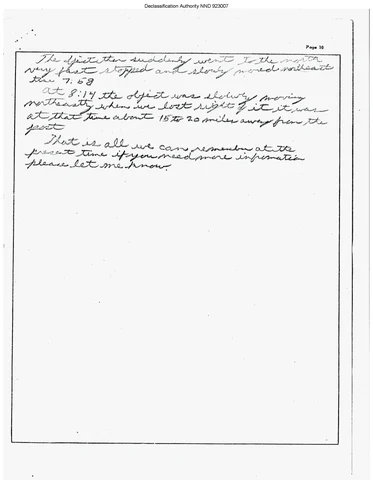 Declassification Authority NND 923007
Page 10
The object then suddenly went to the north
very fast stopped and slowly moved northeast
the 7:58
at 8:14 the object was slowly moving
northeastly when we lost sight of it it was
at that time about 15 to 20 miles away from the
post
That is all we can remember at the
present time if you need more information
please let me know.